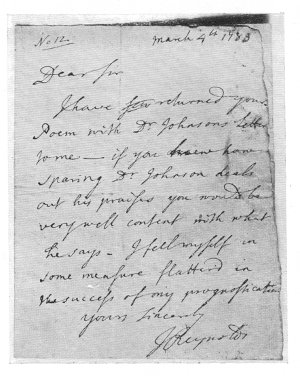 No 12.
March 4th 1783
Dear Sir
I have returned your
Poem with Dr Johnsons letter
to me — if you knew how
sparing Dr Johnson deals
out his praises you would be
very well content with what
he says — I fell myself in
some measure flatterd in
the success of my prognostication
yours sincerely
JReynolds